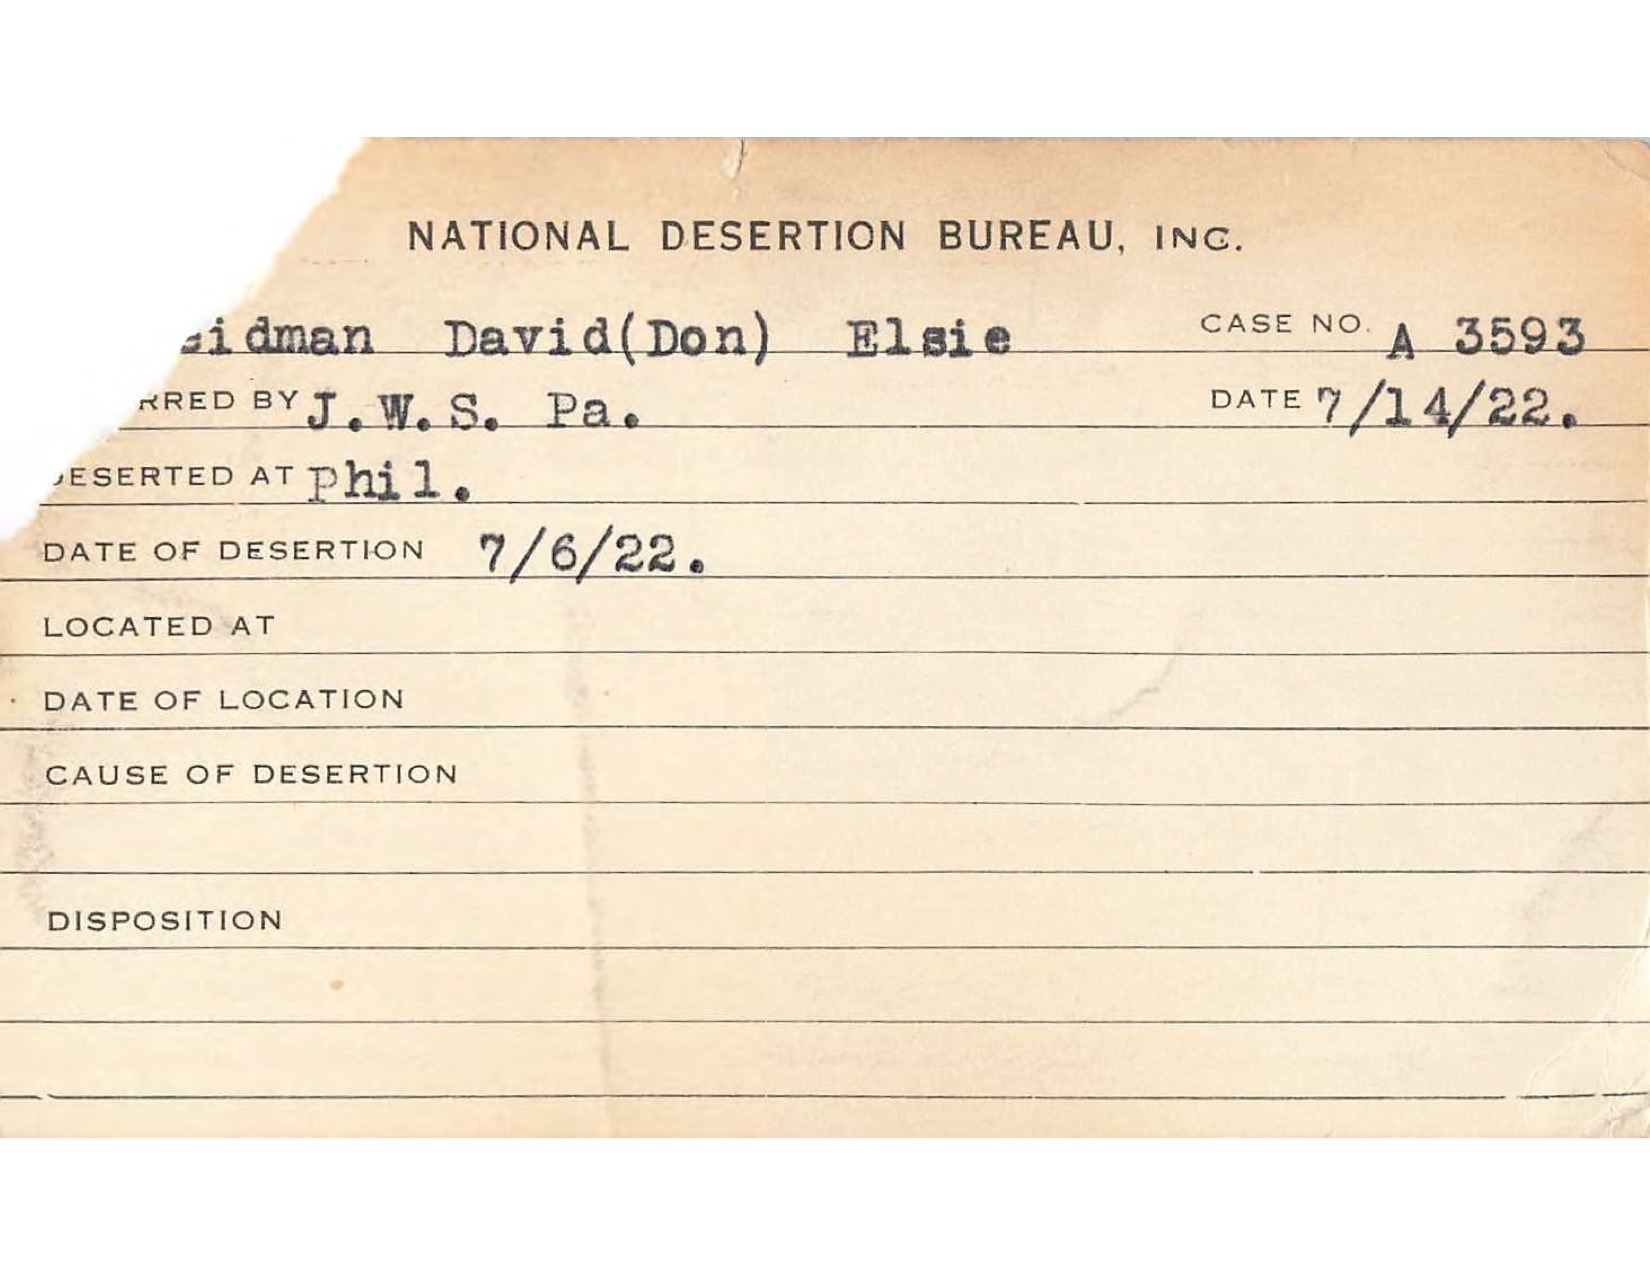 NATIONAL DESERTION BUREAU, INC.
eidman David(Don) Elsie CASE NO. A 3593
RRED BY J.W.S. Pa. DATE 7/14/22.
DESERTED AT Phil.
DATE OF DESERTION 7/6/22.
LOCATED AT
DATE OF LOCATION
CAUSE OF DESERTION
DISPOSITION